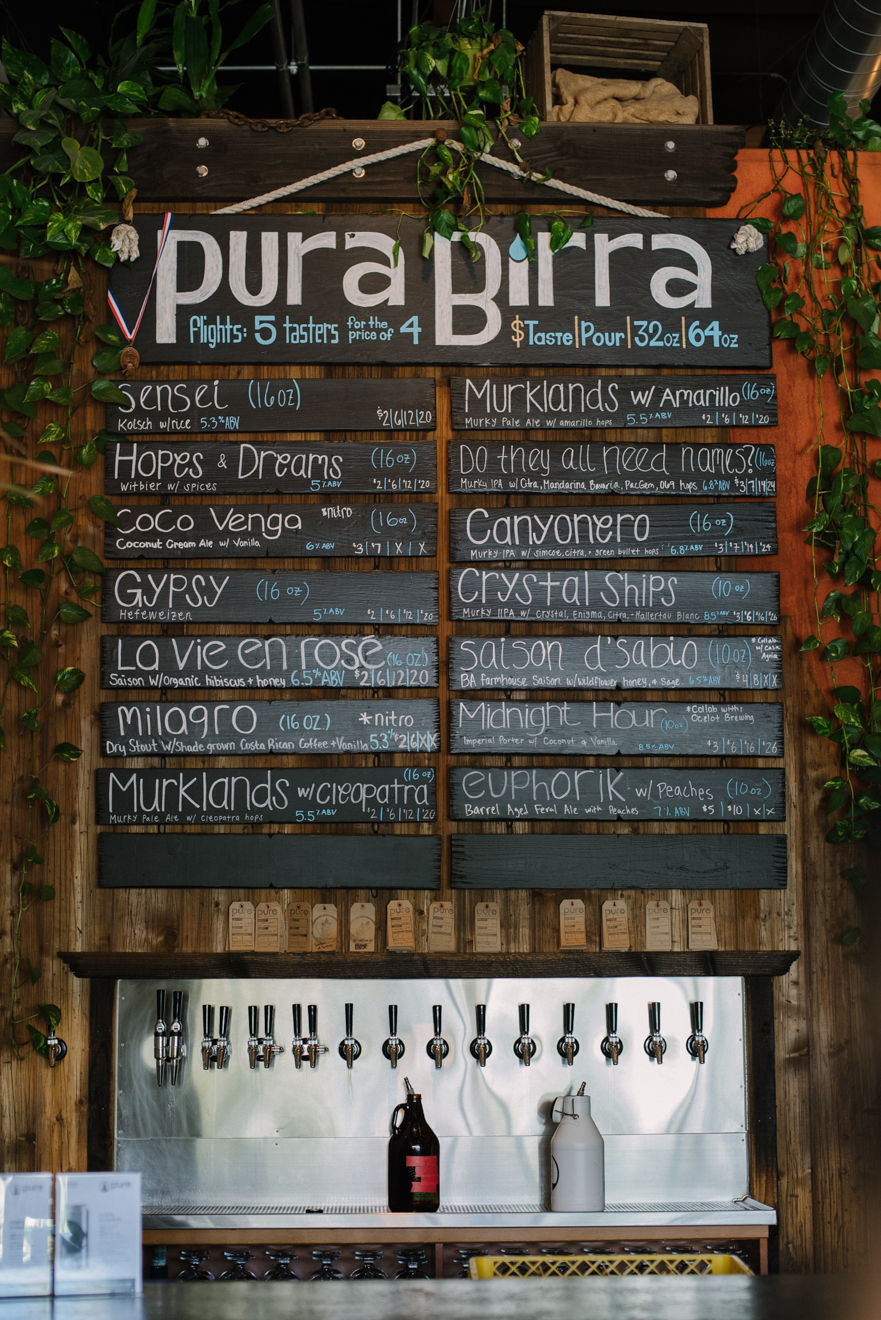 pura Birra
flights: 5 tasters for the price of 4
$Taste|Pour|32oz|64oz
Sensei (16oz)
Kolsch w/rice 5.3%ABV $2|6|12|20
Hopes & Dreams (16oz)
Witbier w/ spices 5%ABV $2|6|12|20
Coco Venga *nitro (16oz)
Coconut Cream Ale w/ Vanilla 6%ABV $3|7|X|X
Gypsy (16oz)
Hefeweizen 5%ABV $2|6|12|20
La Vie en rosé (16oz)
Saison w/organic hibiscus + honey 6.5%ABV $2|6|12|20
Milagro (16oz) *nitro
Dry Stout w/Shade grown Costa Rican Coffee + Vanilla 5.3% $2|6|X|X
Murklands w/cleopatra (16oz)
Murky Pale Ale w/ cleopatra hops 5.5%ABV $2|6|12|20
Murklands w/ Amarillo (16oz)
Murky Pale Ale w/ amarillo hops 5.5%ABV $2|6|12|20
Do they all need names? (16oz)
Murky IPA w/ Citra, Mandarina Bavaria, PacGem, hops 6.8%ABV $3|7|14|24
Canyonero (16oz)
Murky IPA w/ simcoe, citra, + green bullet hops 6.8%ABV $3|7|14|24
Crystal Ships (10oz)
Murky IIPA w/ Crystal, Enigma, Citra, + Hallertau Blanc 8.5%ABV $3|6|16|26
saison d'sabio (10oz) *Collab w/Casa Agria
BA Farmhouse Saison w/wildflower honey, + Sage 6.5%ABV $4|8|X|X
Midnight Hour (10oz) *Collab with: Ocelot Brewing
Imperial Porter w/ Coconut & Vanilla 8.5%ABV $3|6|16|26
euphorik w/ Peaches (10oz)
Barrel Aged Feral Ale with Peaches 7%ABV $5|10|X|X
pura
pura
pura
pura
pura
pura
pura
pura
pura
pura
pure